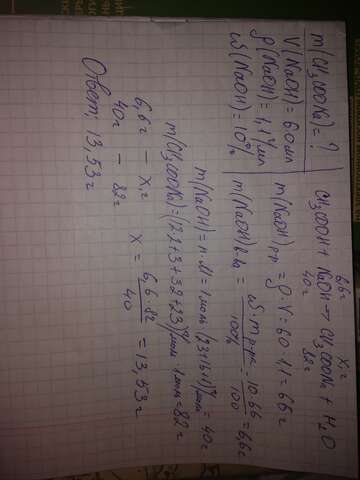 m(CH₃COONa)=?
V(NaOH)=60мл
ρ(NaOH)=1,1 г/мл
ω(NaOH)=10%
6,6г x,г
CH₃COOH + NaOH → CH₃COONa + H₂O
40г 82г
m(NaOH)р-р = ρ·V = 60·1,1 = 66г
m(NaOH)в-ва = ω·mр-ра/100% = 10·66/100 = 6,6г
m(NaOH) = n·M = 1моль·(23+16+1)г/моль = 40г
m(CH₃COONa) = (12·2+3+32+23)г/моль·1моль = 82г
6,6г – x,г
40г – 82г
x = 6,6·82/40 = 13,53г
Ответ: 13,53г